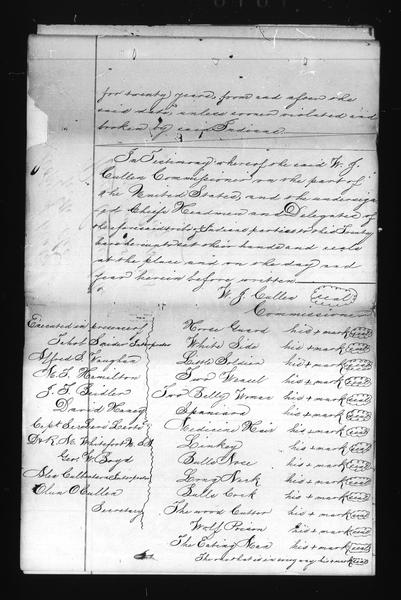 for twenty years, from and after the
said date, unless sooner violated and
broken by said Indians.
In Testimony whereof the said W. J.
Cullen Commissioner on the part of
the United States, and the undersign
ed Chiefs Headmen and Delegates of
the aforesaid tribe of Indians parties to this Treaty
have hereunto set their hands and seals
at the place and on the day and
year herein before written
W. J. Cullen seal
Commissioner
Executed in presence of
Interpreter
Alfred S. Vaughan
N. P. Hamilton
J. X. Beidler
David
Capt.
Geo. W. Boyd
Geo. Interpreter
Clun O. Cullen
Secretary
Horse Guard his + mark seal
White Side his + mark seal
Little Soldier his + mark seal
Two Weasel his + mark seal
Two Belly Woman his + mark seal
Spaniard his + mark seal
Medicine Hair his + mark seal
his + mark seal
Bulls Nose his + mark seal
Long Neck his + mark seal
Bulls Cock his + mark seal
The wood Cutter his + mark seal
Wolf Poison his + mark seal
The Eating Man his + mark seal
his + mark seal